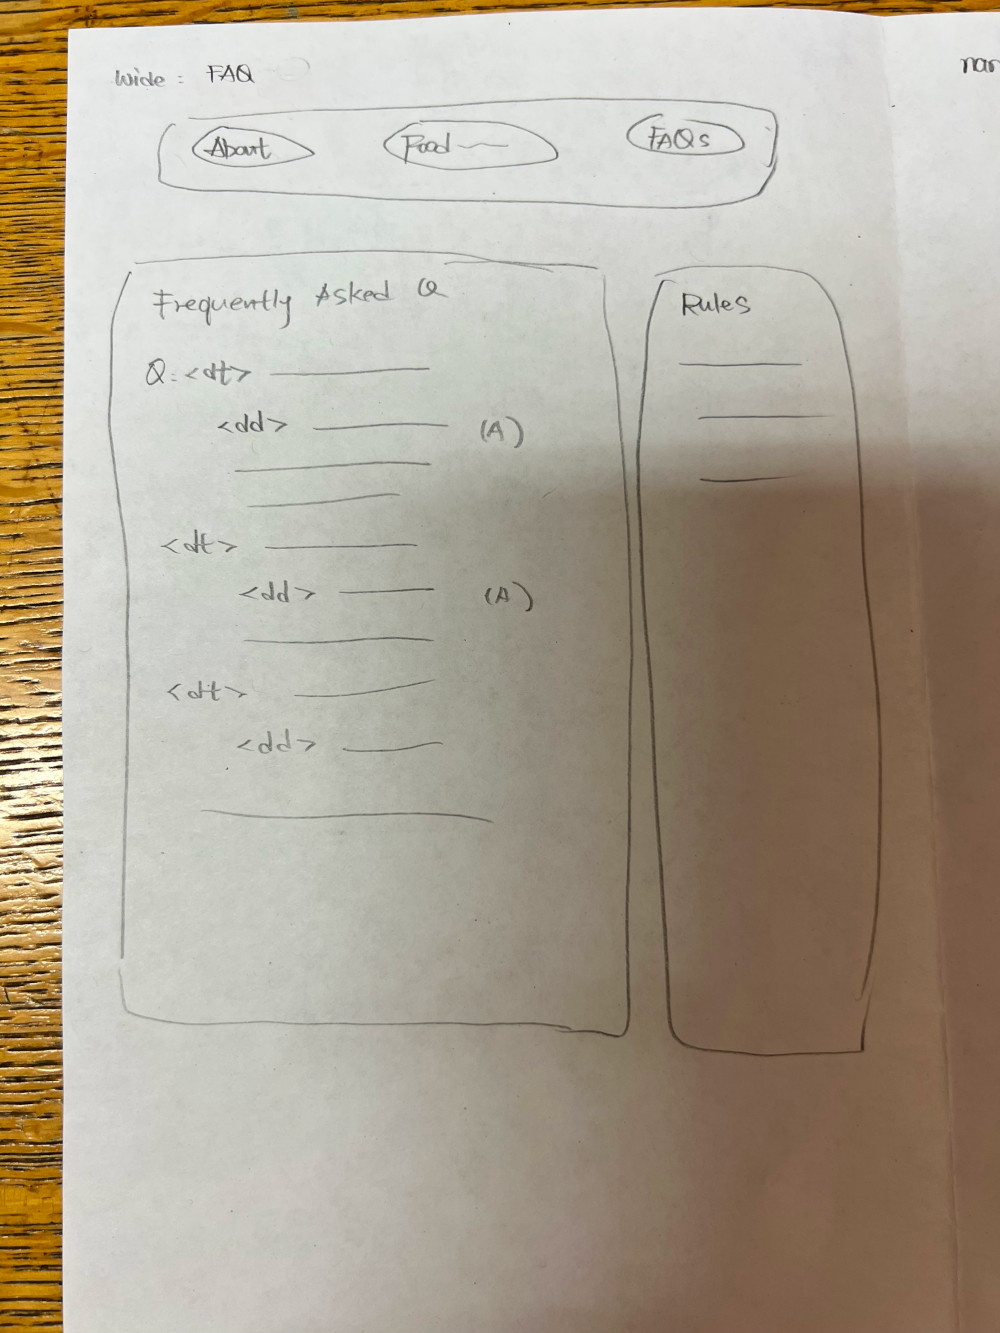 Wide : FAQ
nar
About Food FAQs
Frequently Asked Q
Q: <dt>
<dd> (A)
<dt>
<dd> (A)
<dt>
<dd>
Rules